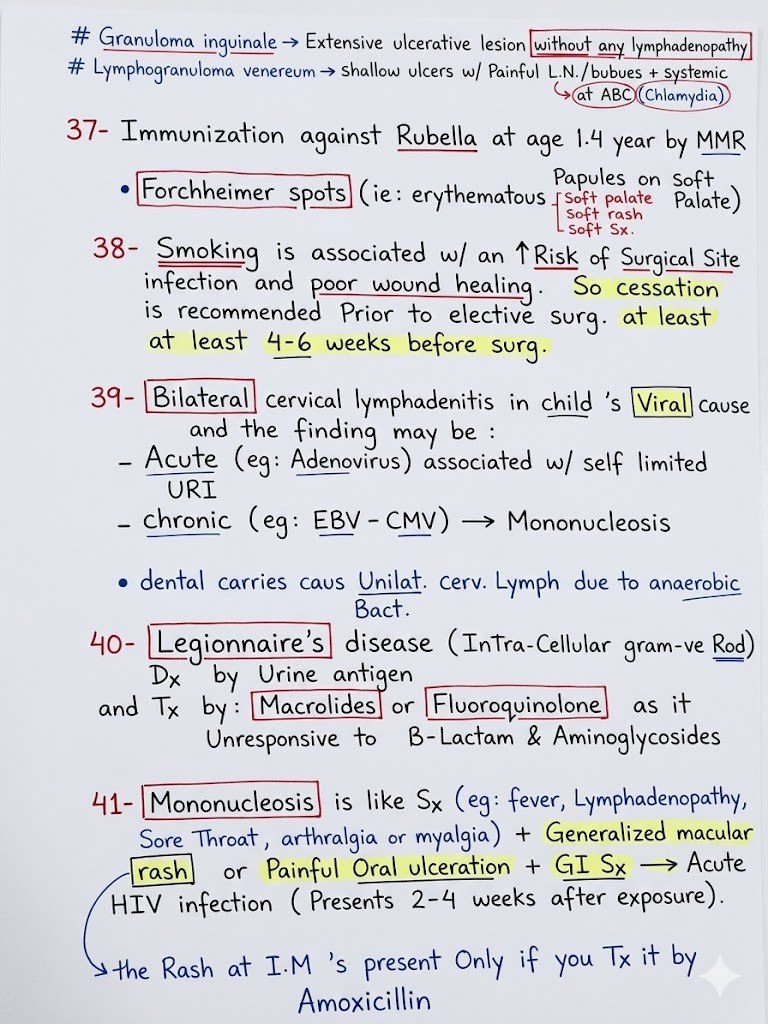 # Granuloma inguinale → Extensive ulcerative lesion without any lymphadenopathy
# Lymphogranuloma venereum → shallow ulcers w/ Painful L.N./bubues + systemic
↳ at ABC (Chlamydia)
37- Immunization against Rubella at age 1.4 year by MMR
• Forchheimer spots (ie: erythematous Papules on Soft Palate)
Soft palate
Soft rash
Soft Sx.
38- Smoking is associated w/ an ↑ Risk of Surgical Site
infection and poor wound healing. So cessation
is recommended Prior to elective surg. at least
at least 4-6 weeks before surg.
39- Bilateral cervical lymphadenitis in child 's Viral cause
and the finding may be :
- Acute (eg: Adenovirus) associated w/ self limited
URI
- chronic (eg: EBV - CMV) → Mononucleosis
• dental carries caus Unilat. cerv. Lymph due to anaerobic
Bact.
40- Legionnaire's disease (InTra-Cellular gram-ve Rod)
Dx by Urine antigen
and Tx by: Macrolides or Fluoroquinolone as it
Unresponsive to B-Lactam & Aminoglycosides
41- Mononucleosis is like Sx (eg: fever, Lymphadenopathy,
Sore Throat, arthralgia or myalgia) + Generalized macular
rash or Painful Oral ulceration + GI Sx → Acute
HIV infection ( Presents 2-4 weeks after exposure).
↳ the Rash at I.M 's present Only if you Tx it by
Amoxicillin